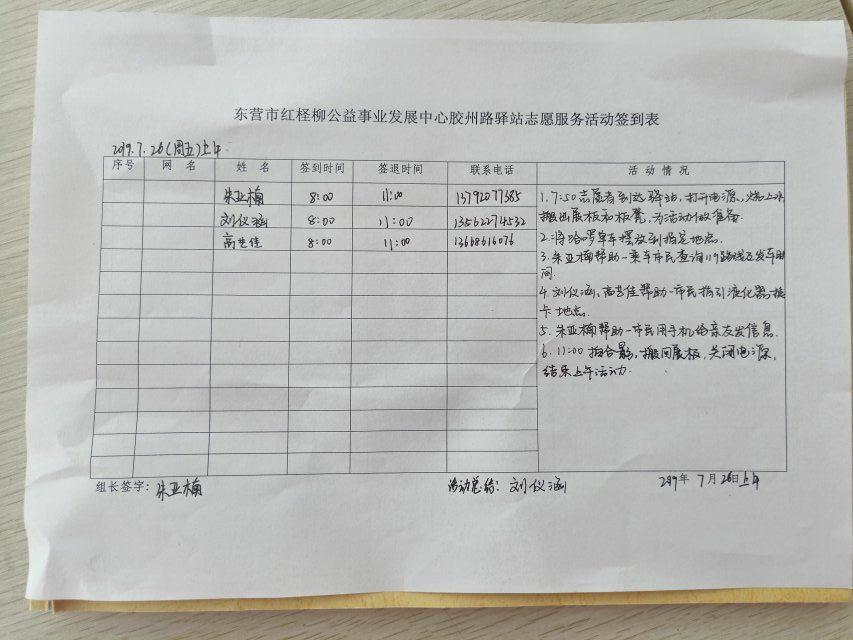 东营市红柽柳公益事业发展中心胶州路驿站志愿服务活动签到表
2019.7.26(周五)上午
序号 网 名 姓 名 签到时间 签退时间 联系电话 活 动 情 况
朱亚楠 8:00 11:00 13792077385
刘仪涵 8:00 11:00 13562274532
高艺佳 8:00 11:00 13668616076
1.7:50志愿者到达驿站,打开电源、烧上水
搬出展板和板凳,为活动做准备.
2.将哈啰单车摆放到指定地点.
3.朱亚楠帮助一乘车市民查询119路线及发车时
间.
4.刘仪涵、高艺佳帮助一市民指引液化器换
卡地点.
5.朱亚楠帮助一市民用手机给亲友发信息.
6.11:00拍合影,搬回展板,关闭电源,
结束上午活动.
组长签字:朱亚楠 活动总结:刘仪涵 2019年 7月26日上午